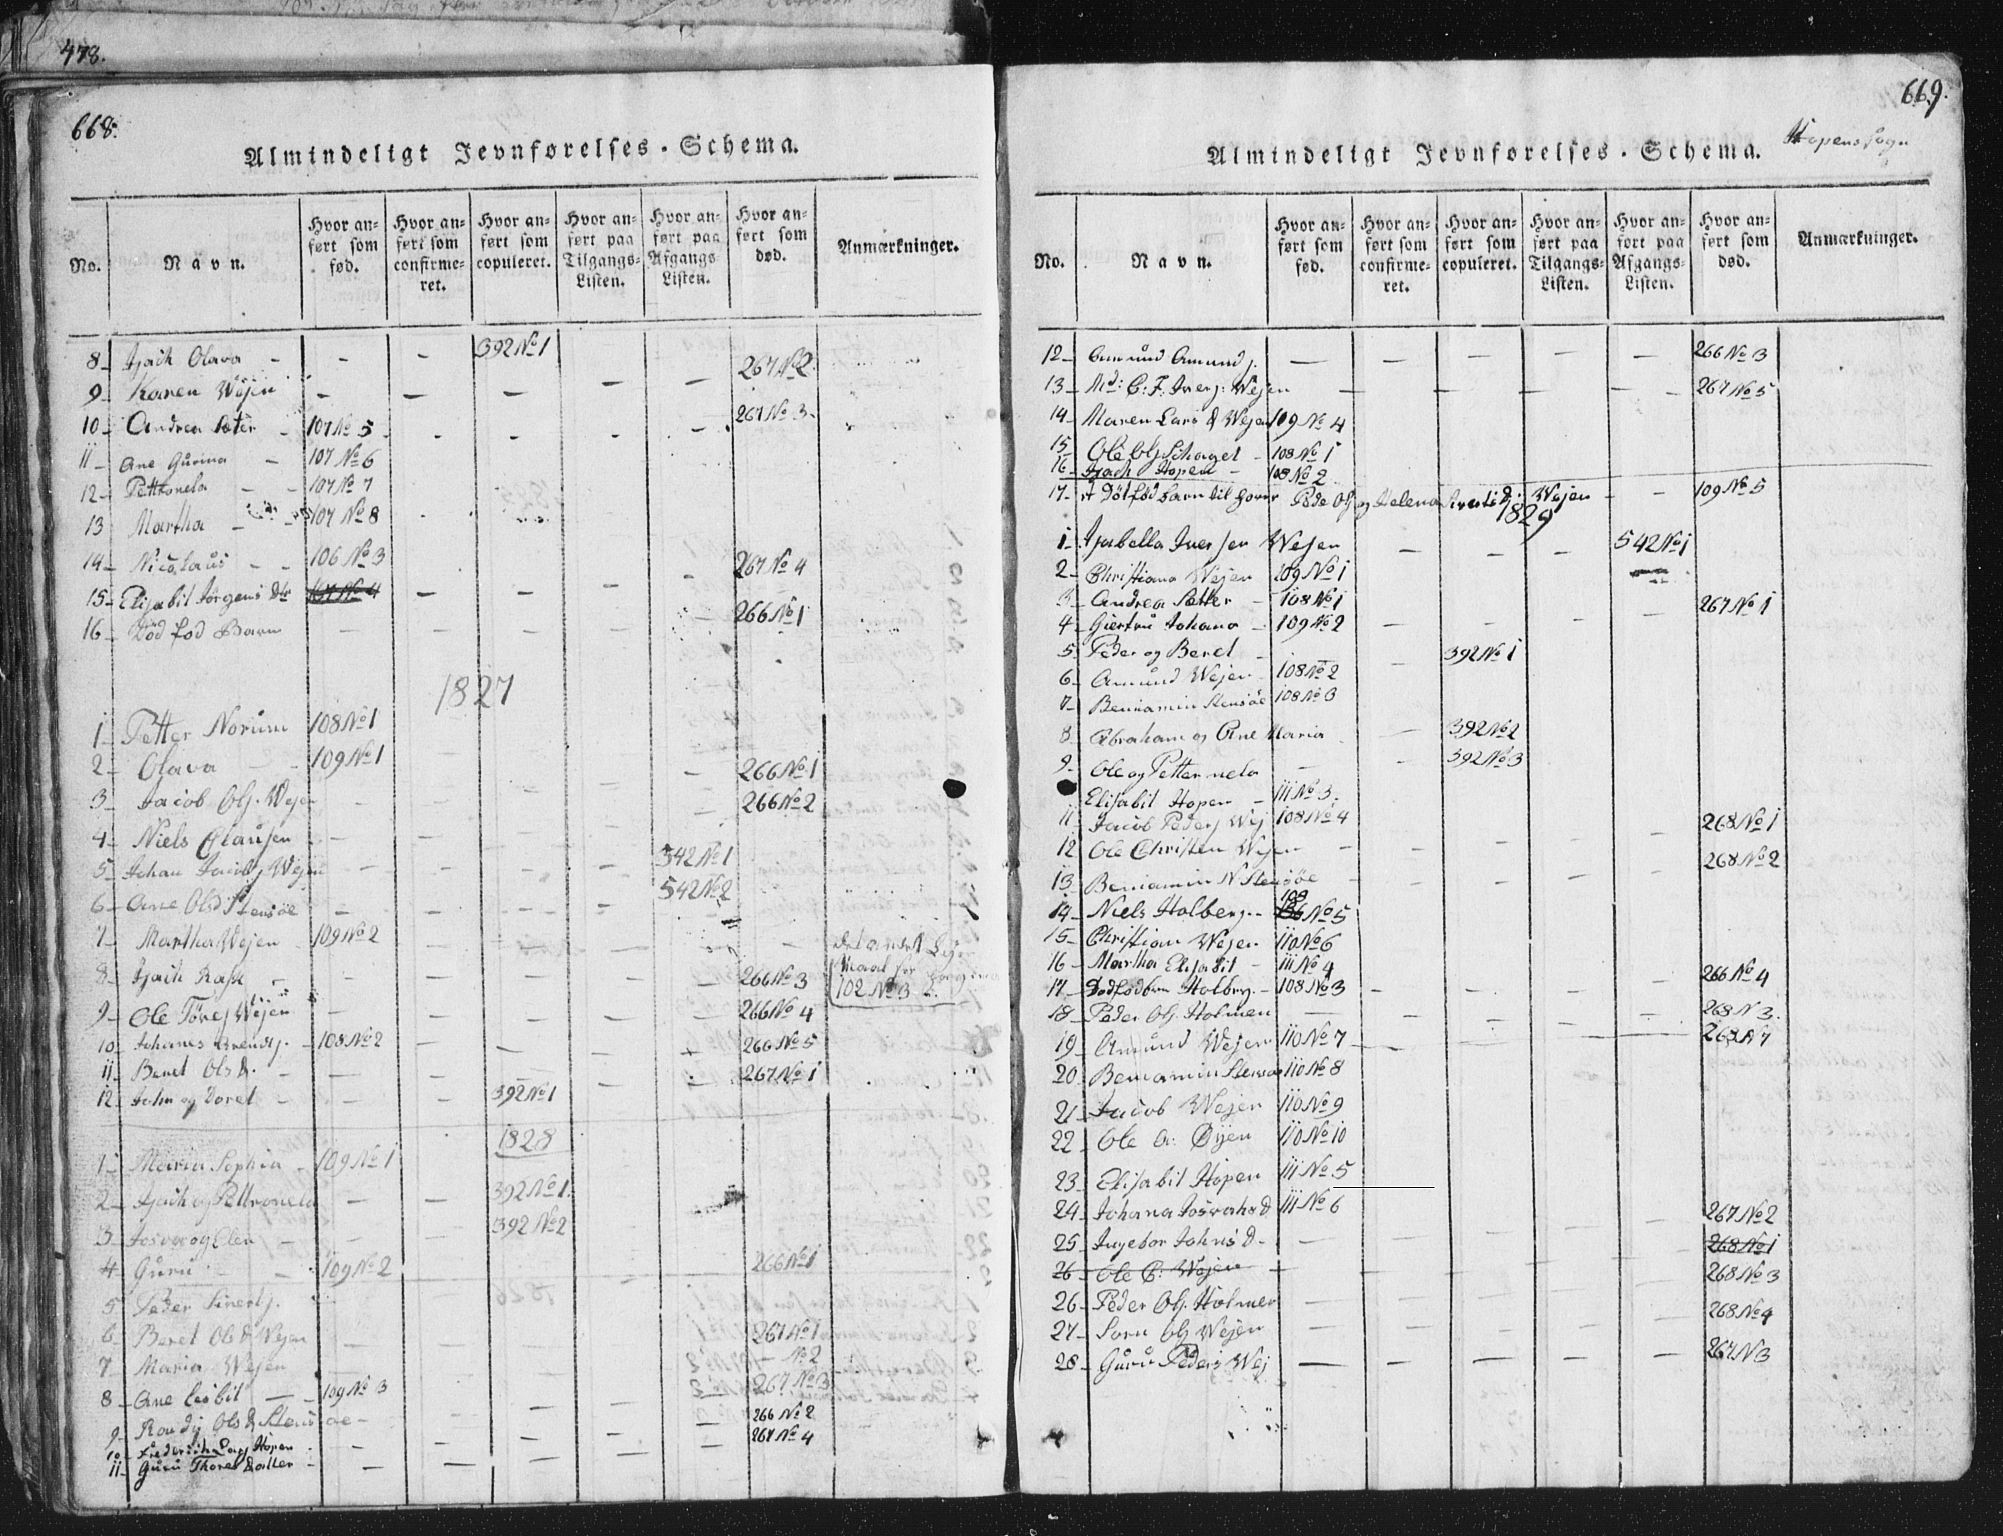 478.
668.
Almindeligt Jevnførelses-Schema.
No. Navn. Hvor anført som fød. Hvor anført som confirmeret. Hvor anført som copuleret. Hvor anført paa Tilgangs-Listen. Hvor anført paa Afgangs-Listen. Hvor anført som død. Anmærkninger.
8 Isach Olava - - - 392 No 1
9 Karen Wejen - - - - 267 No 2
10 Andrea Sæter - 107 No 5 - - - - 267 No 3
11 Ane Gurina - 107 No 6
12 Pettronela - - 107 No 7
13 Martha - 107 No 8
14 Nicolaus - - 106 No 3 267 No 4
15 Elisabit Jørgens Dtr 107 No 4 - - - - 266 No 1
16 Død fød Barn - - - -
1827
1 Petter Norum 108 No 1
2 Olava - - 109 No 1
3 Jacob Ols. Wejen 266 No 1
4 Niels Clausen 266 No 2
5 Johan Jacobs Wejen 342 No 1
6 Ane Olsd Stensöe 542 No 2
7 Martha Wejen 109 No 2
8 Isach Rask - 266 No 3 102 No 3
9 Ole Tores Wejen 266 No 4
10 Johanes 108 No 2 266 No 5
11 Beret Ols d. - 267 No 1
12 John og Doret - 392 No 1
1828
1 Maria Sophia - 109 No 1
2 Isach og Pettronela - 392 No 1
3 Josva og Elen - 392 No 2
4 Guru - 109 No 2 266 No 1
5 Peder
6 Beret Ols d Wejen 267 No 1
7 Maria Wejen - No 2
8 Ane Lisbit - 109 No 3 267 No 3
9 Ols d Stensöe - 266 No 2
10 Hopen - 267 No 4
11 Guru Thores Datter -
669.
Hopens Sogn
Almindeligt Jevnførelses-Schema.
No. Navn. Hvor anført som fød. Hvor anført som confirmeret. Hvor anført som copuleret. Hvor anført paa Tilgangs-Listen. Hvor anført paa Afgangs-Listen. Hvor anført som død. Anmærkninger.
12 Amund Amunds. - - - - - 266 No 3
13 Md: C: F. Ivers: Wejen - - - - 267 No 5
14 Maren Lars d Wejen 109 No 4
15 Ole Ols Schaget - 108 No 1
16 Isach Hopen - 108 No 2
17 et Dötfød barn til Peder Ols og Helena Wejen - - 109 No 5
1829
1 Isabella Iversen Wejen - - 542 No 1
2 Christiana Wejen 109 No 1
3 Andrea Sætter - 108 No 1 267 No 1
4 Giertru Johana - 109 No 2
5 Peder og Beret - 392 No 1
6 Amund Wejen 108 No 2
7 Beniamin Stensöe 108 No 3
8 Abraham og Ane Maria - 392 No 2
9 Ole og Petternela - 392 No 3
Elisabit Hopen - 111 No 3
11 Jacob Peders Wej 108 No 4 268 No 1
12 Ole Christen Wejen - 268 No 2
13 Beniamin N Stensöe
14 Niels Holberg - 109 No 5
15 Christian Wejen 110 No 6
16 Martha Elisabit - 111 No 4 266 No 4
17 Dødfødbrn Holberg - 108 No 3
18 Peder Ols. Holmen 268 N 3
19 Amund Wejen 110 No 7
20 Beniamin Stensøe 110 No 8
21 Jacob Wejen 110 No 9
22 Ole A: Öyen 110 No 10
23 Elisabit Hopen 111 No 5
24 Johana Josvahs d 111 No 6 267 No 2
25 Ingebor Johns d - 268 No 1
26 Ole C: Wejen 268 No 3
26 Peder Ols. Holmen
27 Sorn Ols Wejen 268 No 4
28 Guru Peders Wej - 267 N 3